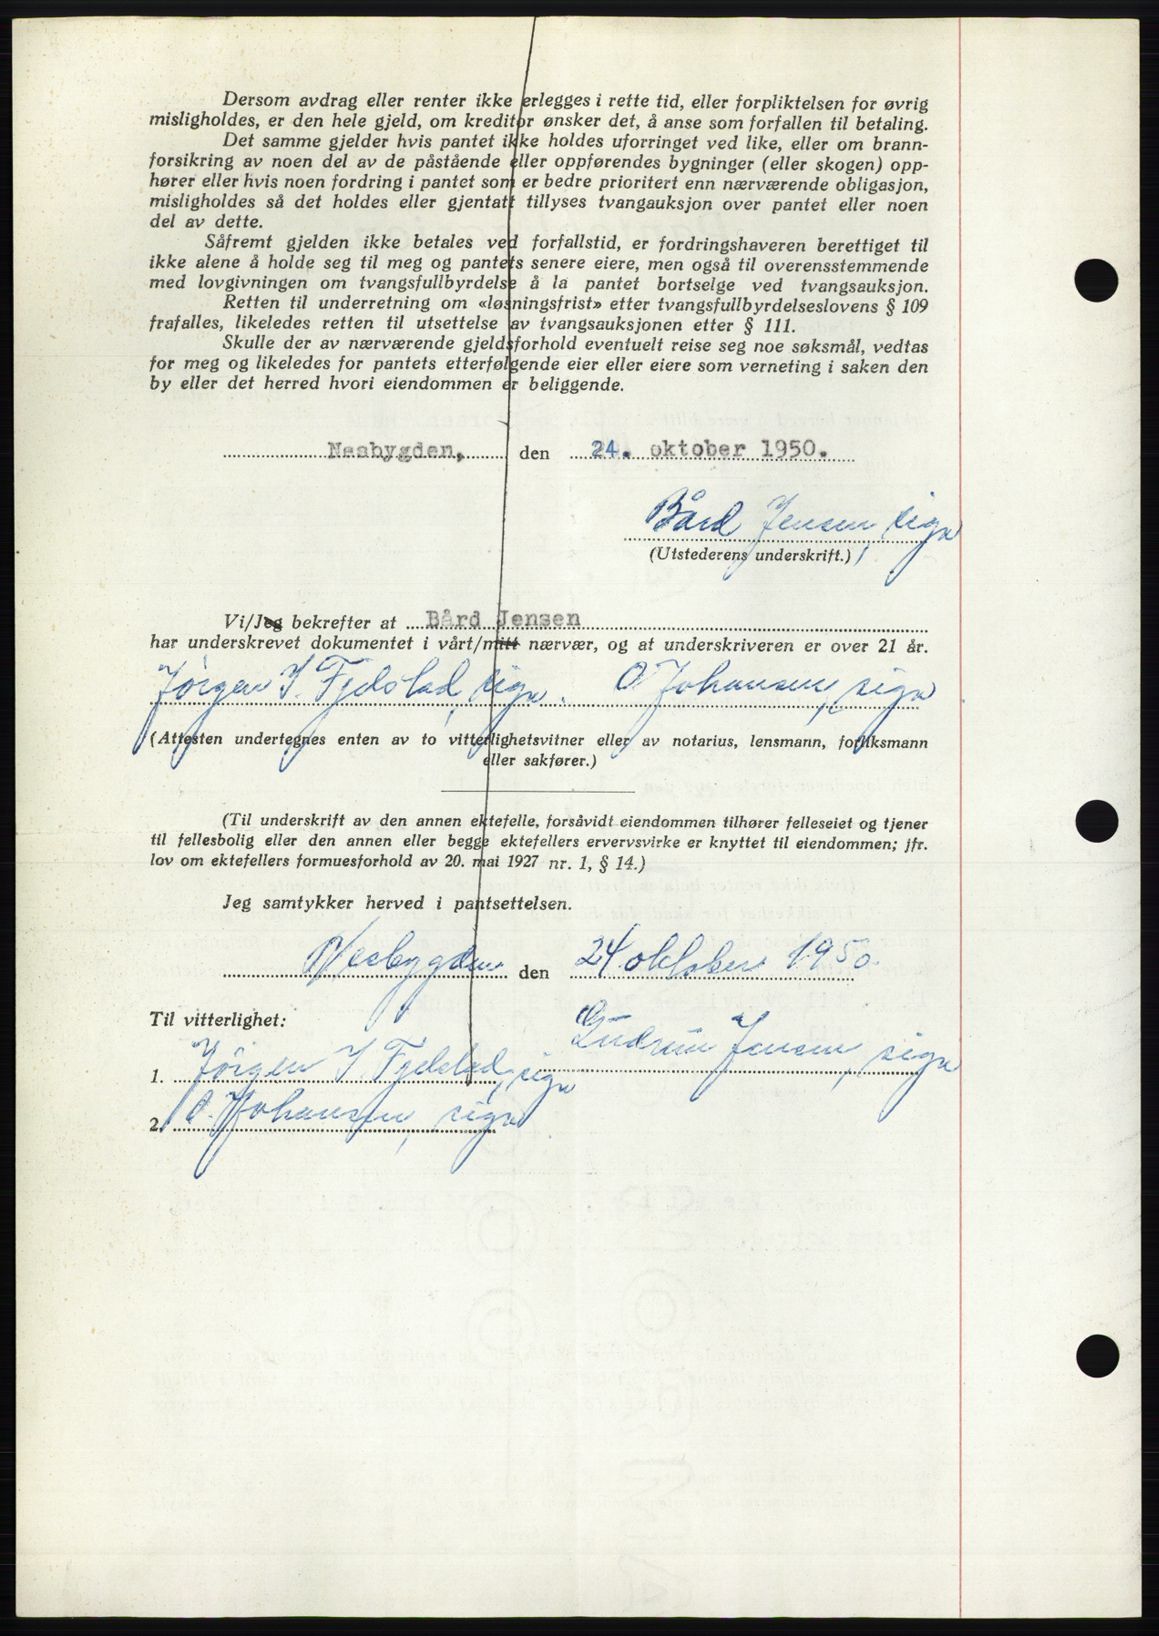 Dersom avdrag eller renter ikke erlegges i rette tid, eller forpliktelsen for øvrig
misligholdes, er den hele gjeld, om kreditor ønsker det, å anse som forfallen til betaling.
Det samme gjelder hvis pantet ikke holdes uforringet ved like, eller om brann-
forsikring av noen del av de påstående eller oppførendes bygninger (eller skogen) opp-
hører eller hvis noen fordring i pantet som er bedre prioritert enn nærværende obligasjon,
misligholdes så det holdes eller gjentatt tillyses tvangauksjon over pantet eller noen
del av dette.
Såfremt gjelden ikke betales ved forfallstid, er fordringshaveren berettiget til
ikke alene å holde seg til meg og pantets senere eiere, men også til overensstemmende
med lovgivningen om tvangsfullbyrdelse å la pantet bortselge ved tvangsauksjon.
Retten til underretning om «løsningsfrist» etter tvangsfullbyrdelseslovens § 109
frafalles, likeledes retten til utsettelse av tvangsauksjonen etter § 111.
Skulle der av nærværende gjeldsforhold eventuelt reise seg noe søksmål, vedtas
for meg og likeledes for pantets etterfølgende eier eller eiere som verneting i saken den
by eller det herred hvori eiendommen er beliggende.
Nesbygden, den 24. oktober 1950.
Bård Jensen, sign
(Utstederens underskrift.)
Vi/Jeg bekrefter at Bård Jensen
har underskrevet dokumentet i vårt/mitt nærvær, og at underskriveren er over 21 år.
Jørgen I. Fjelstad, sign. O. Johansen, sign
(Attesten undertegnes enten av to vitterlighetsvitner eller av notarius, lensmann, forliksmann
eller sakfører.)
(Til underskrift av den annen ektefelle, forsåvidt eiendommen tilhører felleseiet og tjener
til fellesbolig eller den annen eller begge ektefellers ervervsvirke er knyttet til eiendommen; jfr.
lov om ektefellers formuesforhold av 20. mai 1927 nr. 1, § 14.)
Jeg samtykker herved i pantsettelsen.
Nesbygden den 24. oktober 1950.
Til vitterlighet:
Gudrun Jensen, sign
1. Jørgen I. Fjelstad, sign
2. O. Johansen, sign